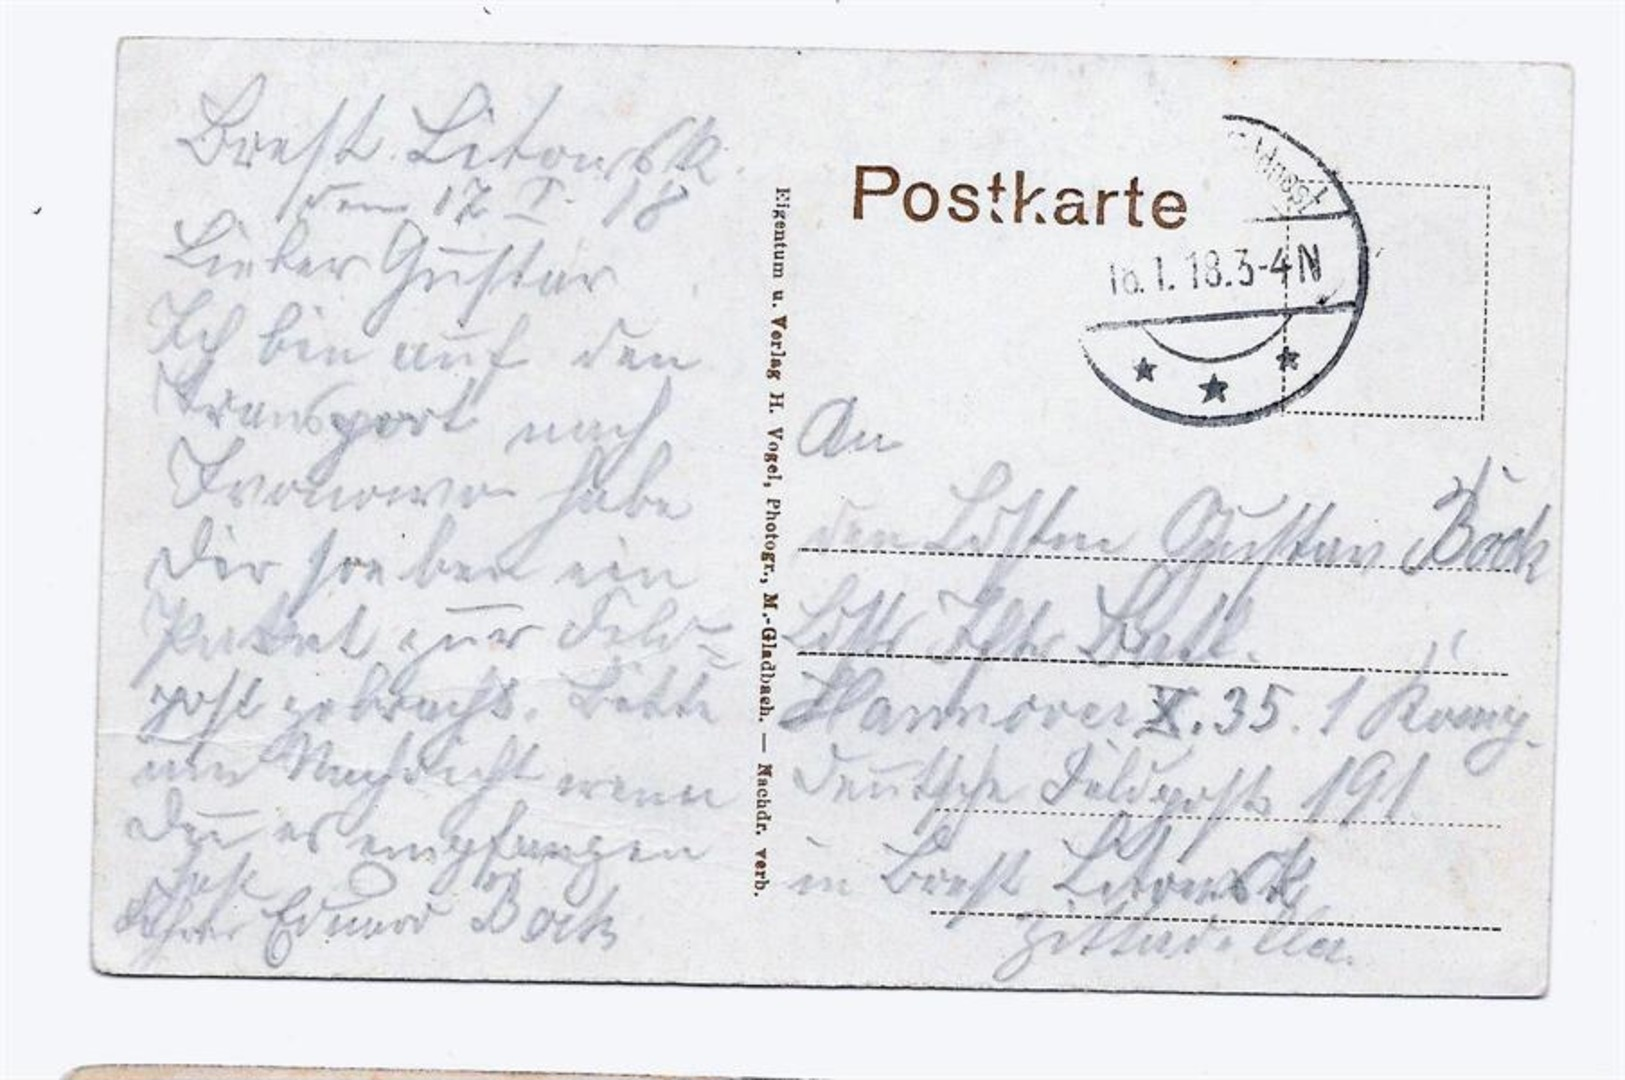 Brest Litowsk.
den 17. I. 18
Lieber Gustav
Ich bin auf den
Transport nach
habe
Dir soeben ein
Paket zur Feld-
post gebracht. Bitte
um Nachricht wenn
Du es empfangen
hast
Eduard Bock
Eigentum u. Verlag H. Vogel, Photogr., M.-Gladbach. — Nachdr. verb.
Postkarte
18.3-4N
An
den Ldstm Gustav Bock
Ldst. Inft. Batl.
Hannover X. 35. 1 Komp.
Deutsche Feldpost 191.
in Brest Litowsk
Zittadella.